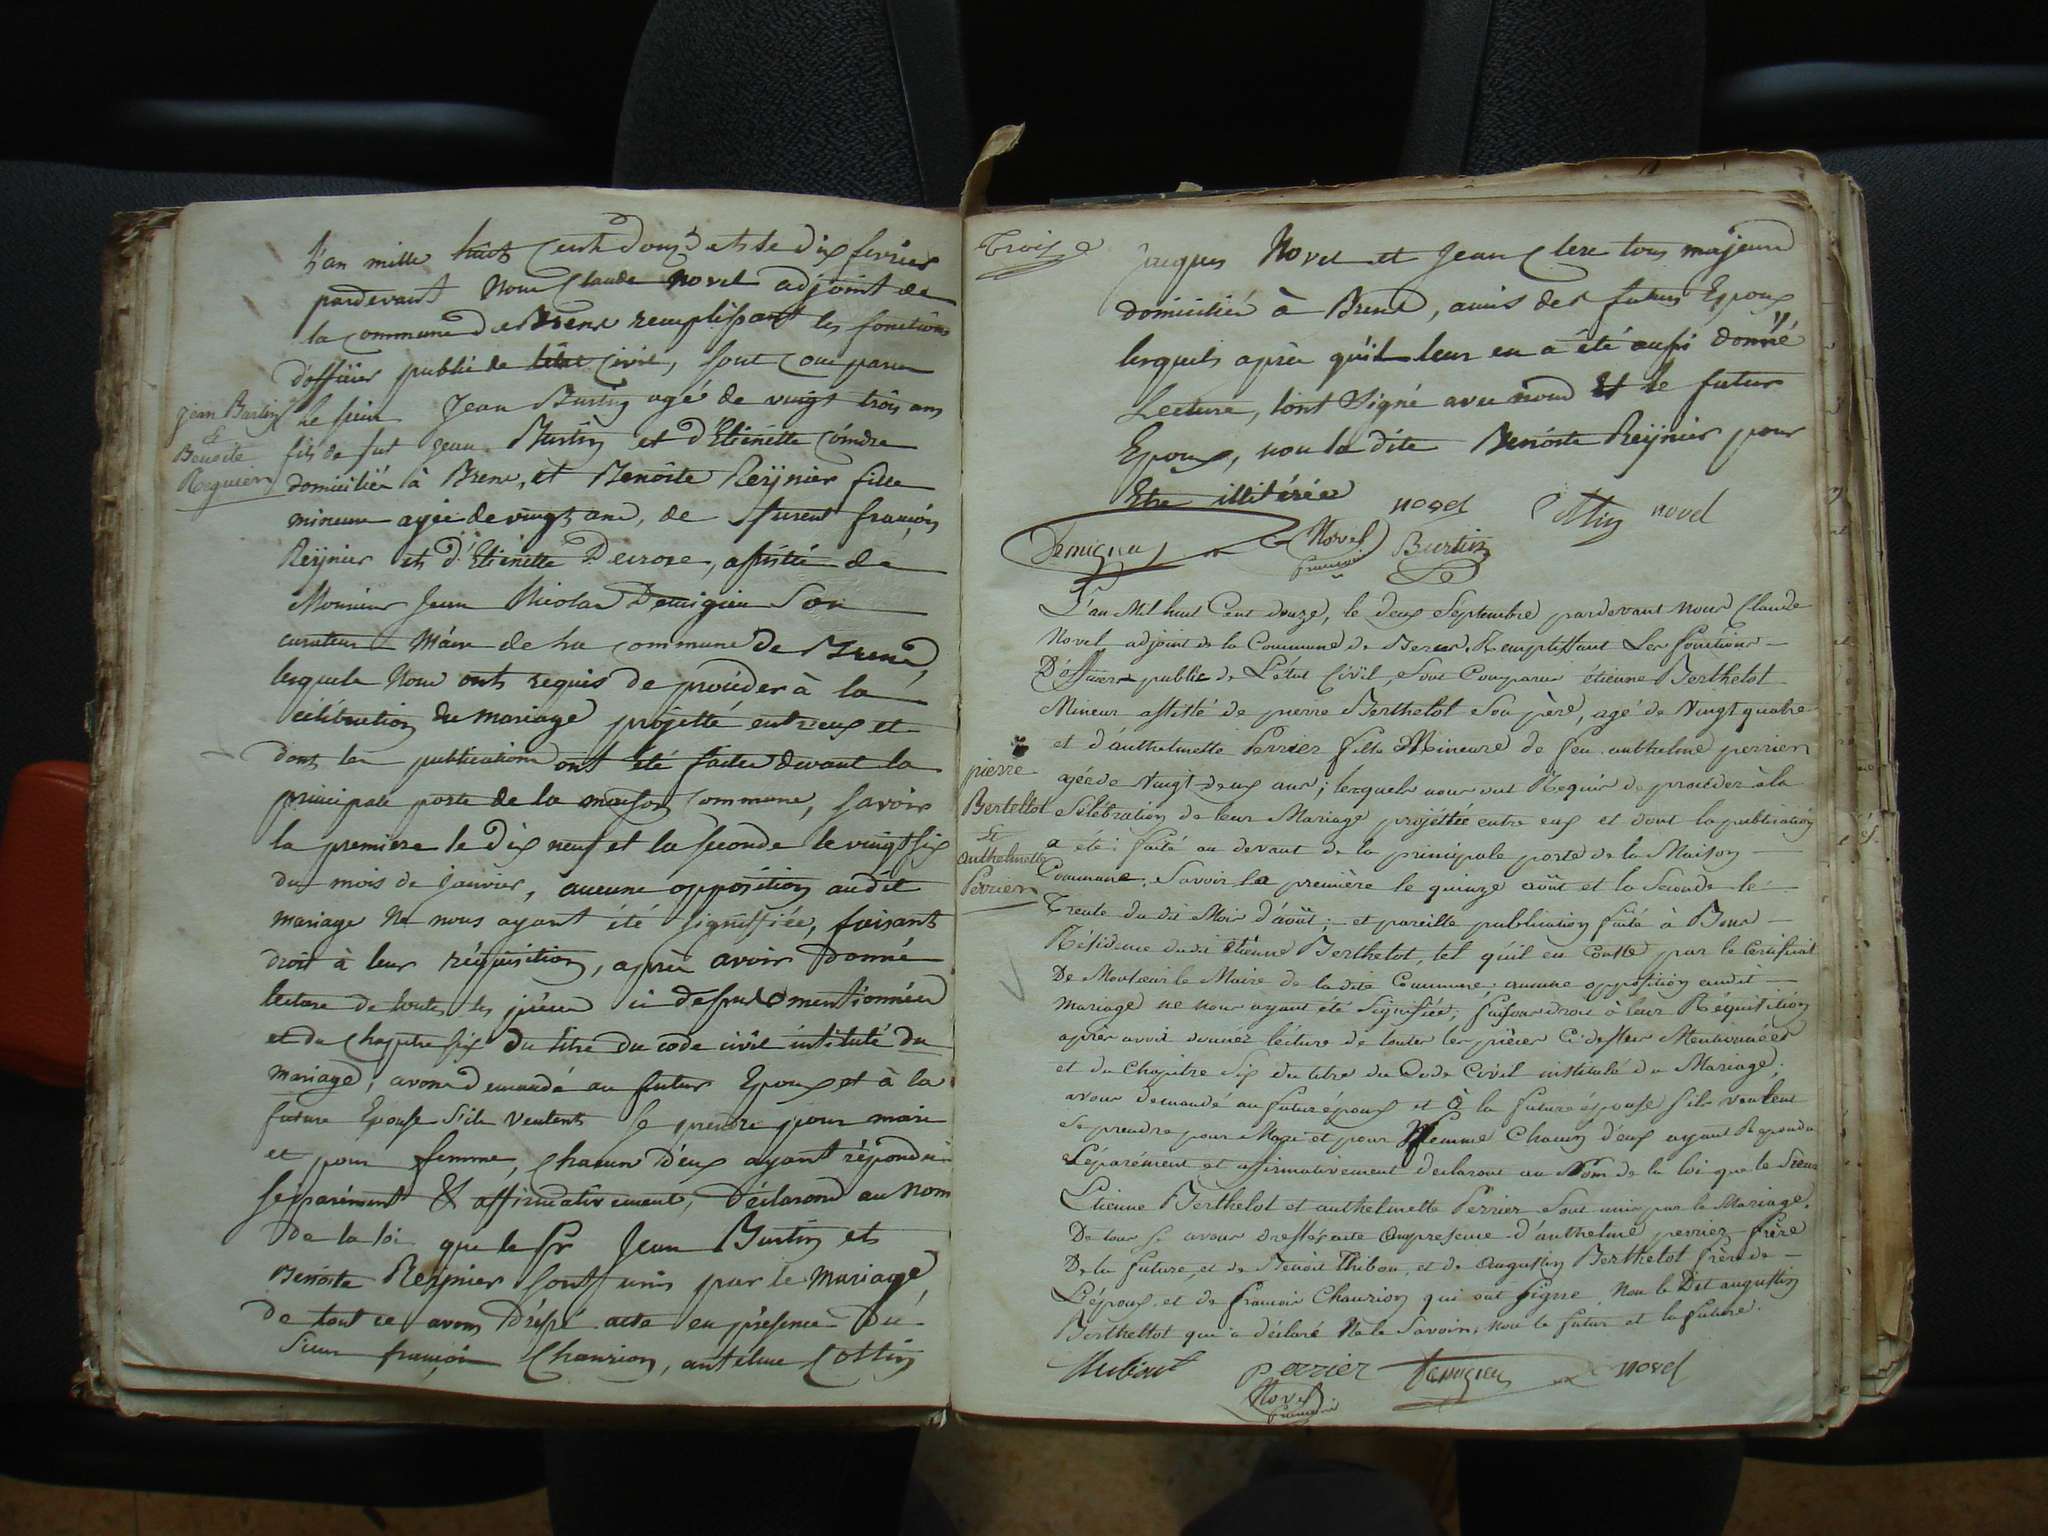 L'an mille huit cent douze et le dix fevrier
pardevant Nous Claude Novel adjoint de
la commune de Brens remplissant les fonctions
d'officier public de l'état civil, sont comparus
jean Burtin
&
Benoite
Reynier
le sieur Jean Burtin agé de vingt trois ans
fils de fut Jean Burtin et d'Etienétte Coindre
domicilié à Brens, et Benoîte Reÿnier fille
mineure agée de vingt ans, de furent françois
Reÿnier et d'Etienétte Decrose, assistée de
Monsieur Jean Nicolas Demigieu Son
curateur Maire de la commune de Brens,
lesquels Nous onts requis de procéder à la
célébration du mariage projetté entr'eux et
dont les publications ont été faites devant la
principale porte de la maison commune, savoir
la premiere le dix neuf et la seconde le vingt six
du mois de Janvier, aucune opposition audit
mariage Ne nous ayant été signiffiée, faisant
droit à leur réquisition, après avoir donné
lecture de toutes les pièces ci dessus mentionnées
et du Chapitre six du titre du code civil intitulé du
mariage, avons demandé au futur Epoux et à la
future Epouse s'ils veulents se prendre pour mari
et pour femme, chacun d'eux ayant répondu
séparément & affirmativement, Déclarons au Nom
de la loi que le Sr Jean Burtin et
Benoîte Reÿnier sont unis par le Mariage,
de tout ce avons dressé acte en présence du
Sieur françois Chanrion, antelme Cottin
Trois
Jacques Novel et Jean Clerc tous majeurs
domiciliés à Brens, amis des futurs Epoux
lesquels après qu'il leur en a été aussi donné
Lecture, l'ont Signé avec nous Et le futur
Epoux, non la dite Benoîte Reÿnier pour
Etre illitérée
novel Cottin novel
Demigieu Novel Burtin
françois
L'an Mil huit Cent douze, le deux Septembre pardevant Nous Claude
Novel adjoint de la Commune de Brens, Remplissant Les fonctions
D'officier public de L'état Civil, Sont Comparus étienne Berthelot
Mineur assisté de pierre Berthelot Son père, agé de Vingt quatre
et d'anthelmette Perrier fille Mineure de feu anthelme perrier
pierre
Bertellot
et
anthelmette
Perrier
agée de Vingt-deux ans; lesquels nous ont Requis de procéder à la
Célébration de leur Mariage projéttée entre eux et dont la publication
a été faite au devant de la principale porte de la Maison
Commune, Savoir la première le quinze août et la Seconde le
Trente du dit Mois d'août; et pareille publication faite à
Résidence dudit étienne Berthelot, tel qu'il en Conste par le Certificat
De Monsieur le Maire de la dite Commune, aucune opposition audit
Mariage ne nous ayant été Signifiée, faisant droit à leur Réquisition
après avoir donnéz lécture de toutes les pièces Ci dessus Mentionnées
et du Chapitre Six du titre du Code Civil institulé du Mariage,
avons demandé au futur époux et à la future épouse s'ils veulent
Se prendre pour Mari et pour femme Chacun d'eux ayant Répondu
Séparément et affirmativement declarons au Nom de la loi que le Sieur
Etienne Berthelot et anthelmette Perrier Sont unis par le Mariage,
De tous se avons dressés acte en presence d'anthelme perrier frère
De la future, et de Benoit Thibou, et de Augustin Berthelot frère de
L'époux, et de françois Chanrion qui ont signe, Non le Dit augustin
Berthellot qui a déclaré Ne le Savoir, non le futur et la future.
Perrier Demigieu novel
Novel
françois